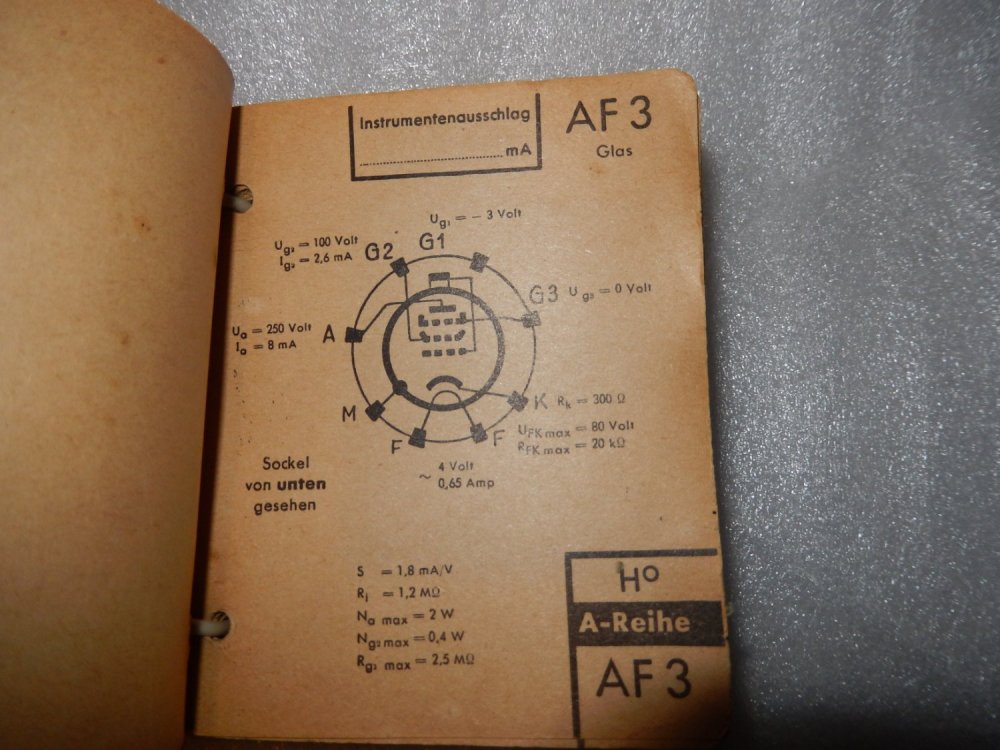 Instrumentenausschlag
mA
AF 3
Glas
Ug1 = – 3 Volt
Ug2 = 100 Volt
Ig2 = 2,6 mA
G2
G1
G3
Ug3 = 0 Volt
Ua = 250 Volt
Ia = 8 mA
A
M
F
F
K
Rk = 300 Ω
UFK max = 80 Volt
RFK max = 20 kΩ
~ 4 Volt
0,65 Amp
Sockel
von unten
gesehen
S = 1,8 mA/V
Ri = 1,2 MΩ
Na max = 2 W
Ng2 max = 0,4 W
Rg1 max = 2,5 MΩ
Ho
A-Reihe
AF 3